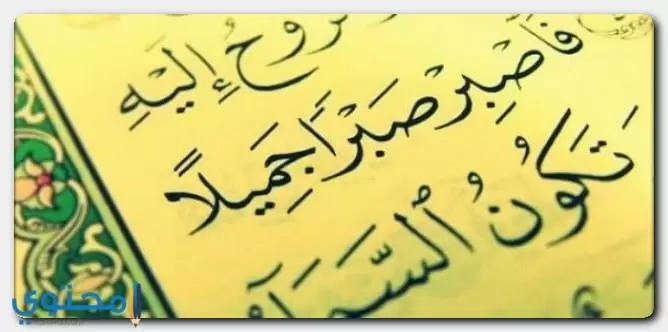 ٱلرُّوحُ إِلَيْهِ
فَٱصْبِرْ صَبْرًا جَمِيلًا
تَكُونُ ٱلسَّمَآ
محتوى